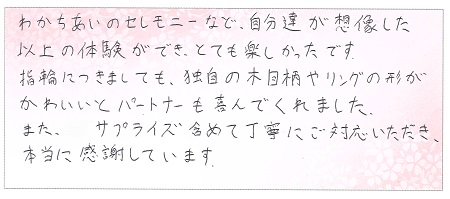 わかちあいのセレモニーなど、自分達が想像した
以上の体験ができ、とても楽しかったです。
指輪につきましても、独自の木目柄やリングの形が
かわいいとパートナーも喜んでくれました。
また、 サプライズ含めて丁寧にご対応いただき、
本当に感謝しています。